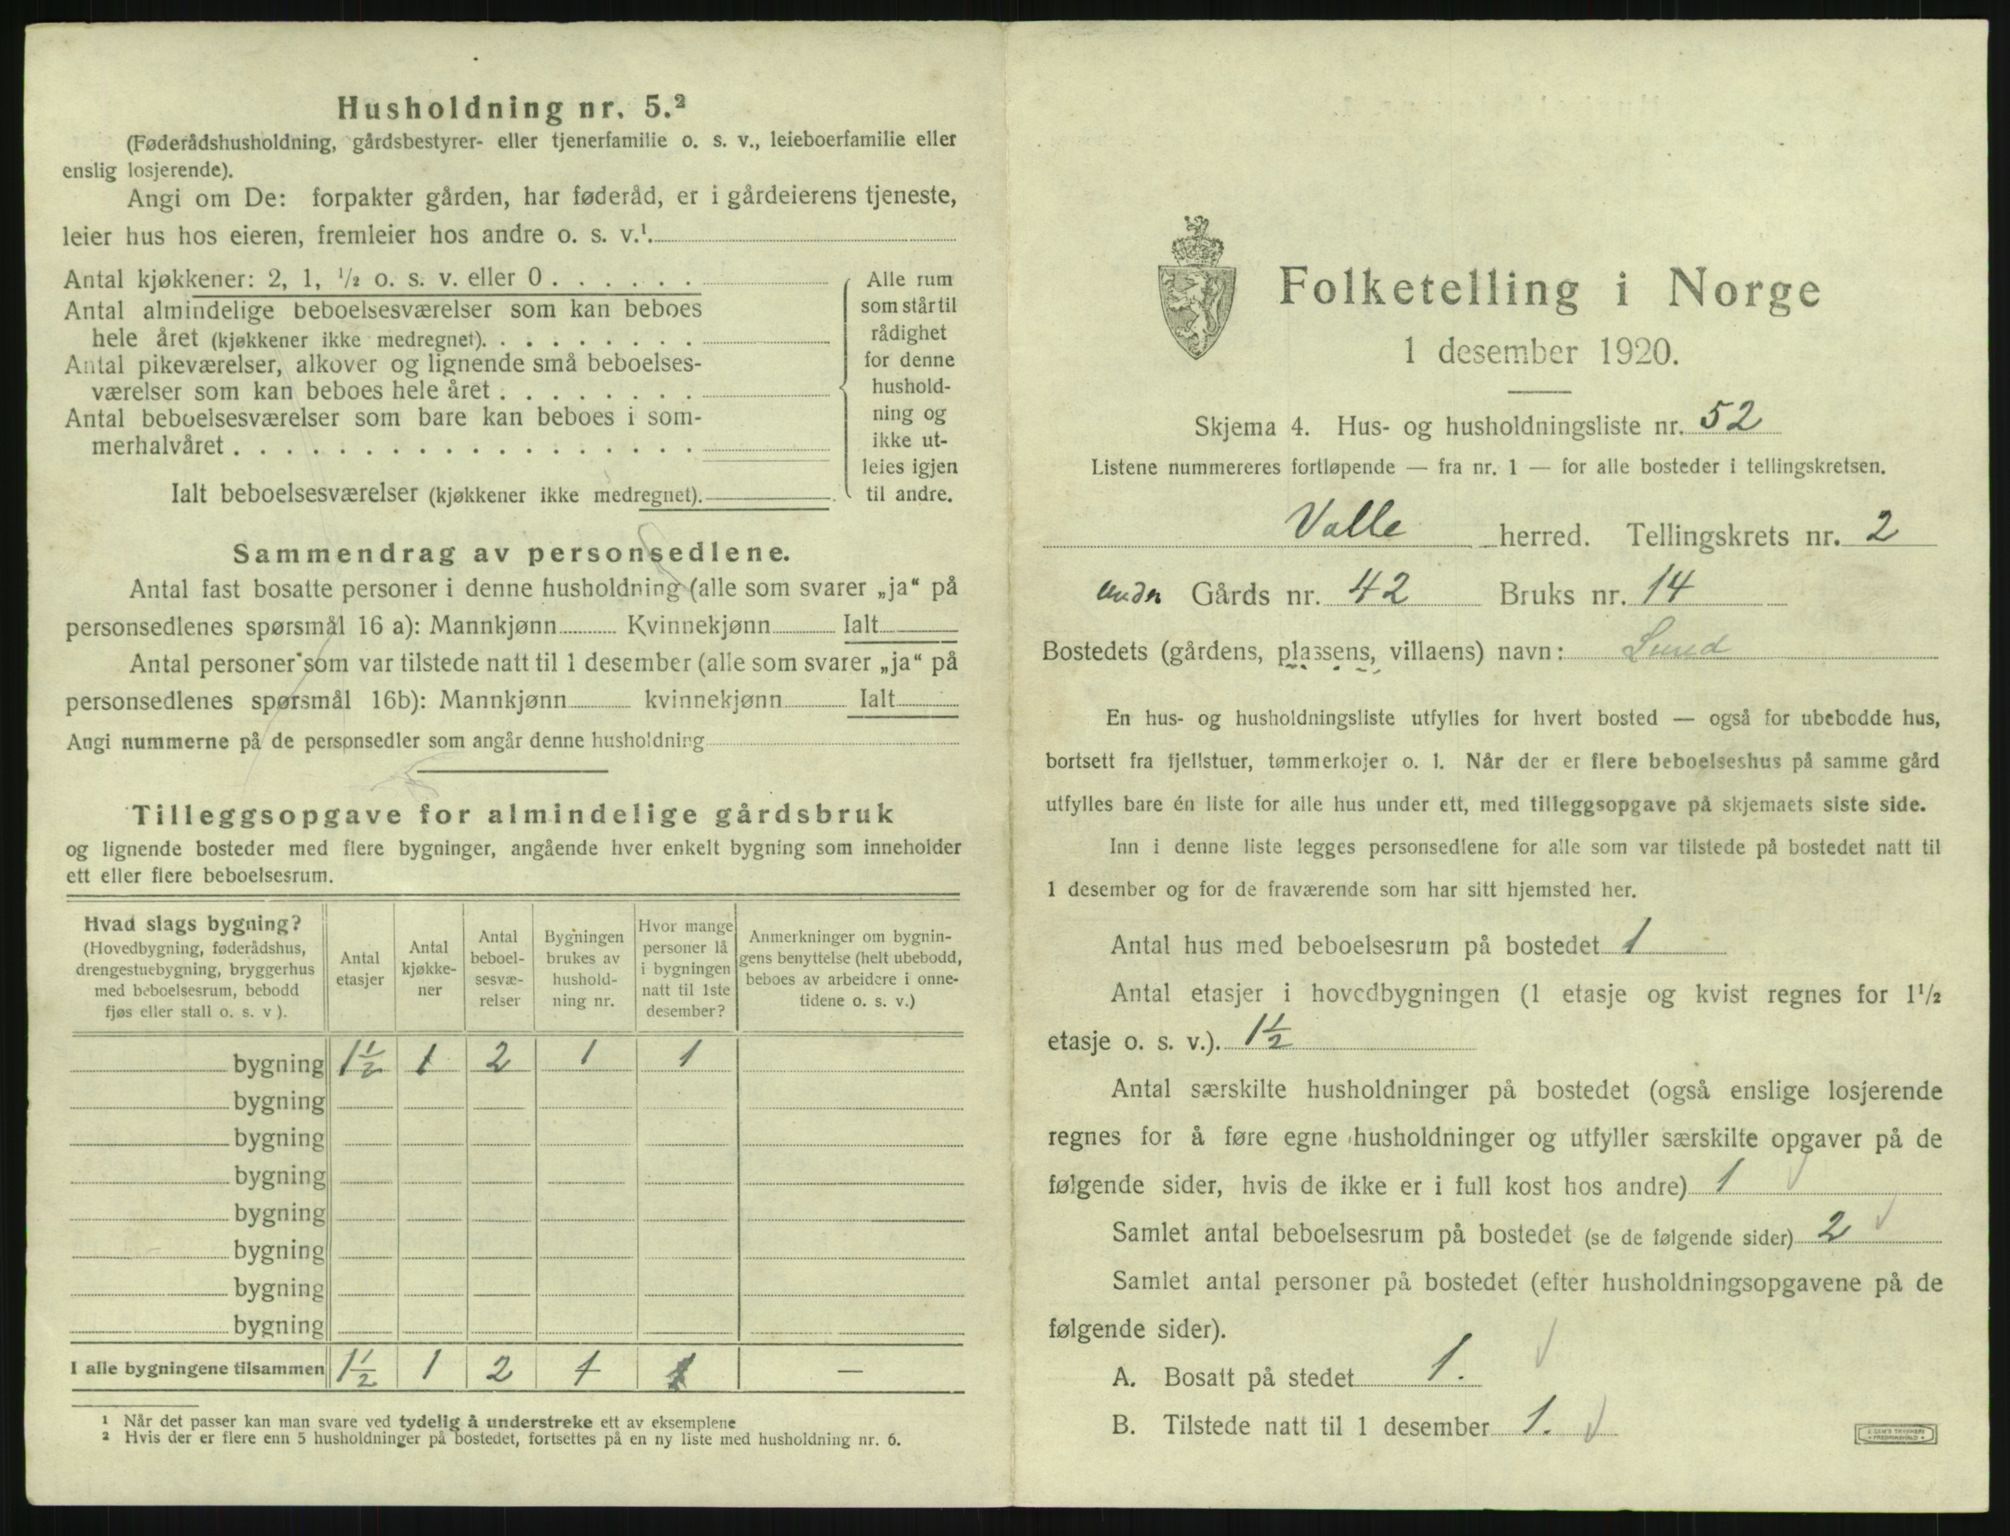 Husholdning nr. 5.²
(Føderådshusholdning, gårdsbestyrer- eller tjenerfamilie o. s. v., leieboerfamilie eller
enslig losjerende).
Angi om De: forpakter gården, har føderåd, er i gårdeierens tjeneste,
leier hus hos eieren, fremleier hos andre o. s. v.¹
Antal kjøkkener: 2, 1, ½ o. s. v. eller 0 . . . . . .
Antal almindelige beboelsesværelser som kan beboes
hele året (kjøkkener ikke medregnet). . . . . . . . .
Antal pikeværelser, alkover og lignende små beboelses-
værelser som kan beboes hele året . . . . . . . .
Antal beboelsesværelser som bare kan beboes i som-
merhalvåret . . . . . . . . . . . . . . . . . .
Ialt beboelsesværelser (kjøkkener ikke medregnet).
Alle rum
som står til
rådighet
for denne
hushold-
ning og
ikke ut-
leies igjen
til andre.
Sammendrag av personsedlene.
Antal fast bosatte personer i denne husholdning (alle som svarer „ja“ på
personsedlenes spørsmål 16 a): Mannkjønn Kvinnekjønn Ialt
Antal personer som var tilstede natt til 1 desember (alle som svarer „ja“ på
personsedlenes spørsmål 16b): Mannkjønn kvinnekjønn Ialt
Angi nummerne på de personsedler som angår denne husholdning
Tilleggsopgave for almindelige gårdsbruk
og lignende bosteder med flere bygninger, angående hver enkelt bygning som inneholder
ett eller flere beboelsesrum.
Hvad slags bygning?
(Hovedbygning, føderådshus,
drengestuebygning, bryggerhus
med beboelsesrum, bebodd
fjøs eller stall o. s. v ).
Antal
etasjer
Antal
kjøkke-
ner
Antal
beboel-
sesvæ-
relser
Bygningen
brukes av
hushold-
ning nr.
Hvor mange
personer lå
i bygningen
natt til 1ste
desember?
Anmerkninger om bygnin-
gens benyttelse (helt ubebodd,
beboes av arbeidere i onne-
tidene o. s. v.)
bygning 1½ 1 2 1 1
bygning
bygning
bygning
bygning
bygning
bygning
bygning
I alle bygningene tilsammen 1½ 1 2 1 1 —
¹ Når det passer kan man svare ved tydelig å understreke ett av eksemplene
² Hvis der er flere enn 5 husholdninger på bostedet, fortsettes på en ny liste med husholdning nr. 6.
Folketelling i Norge
1 desember 1920.
Skjema 4. Hus- og husholdningsliste nr. 52
Listene nummereres fortløpende — fra nr. 1 — for alle bosteder i tellingskretsen.
Valle herred. Tellingskrets nr. 2
under Gårds nr. 42 Bruks nr. 14
Bostedets (gårdens, plassens, villaens) navn: Lund
En hus- og husholdningsliste utfylles for hvert bosted — også for ubebodde hus,
bortsett fra fjellstuer, tømmerkojer o. l. Når der er flere beboelseshus på samme gård
utfylles bare én liste for alle hus under ett, med tilleggsopgave på skjemaets siste side.
Inn i denne liste legges personsedlene for alle som var tilstede på bostedet natt til
1 desember og for de fraværende som har sitt hjemsted her.
Antal hus med beboelsesrum på bostedet 1
Antal etasjer i hovedbygningen (1 etasje og kvist regnes for 1½
etasje o. s. v.). 1½
Antal særskilte husholdninger på bostedet (også enslige losjerende
regnes for å føre egne husholdninger og utfyller særskilte opgaver på de
følgende sider, hvis de ikke er i full kost hos andre) 1
Samlet antal beboelsesrum på bostedet (se de følgende sider) 2
Samlet antal personer på bostedet (efter husholdningsopgavene på de
følgende sider).
A. Bosatt på stedet 1.
B. Tilstede natt til 1 desember 1.